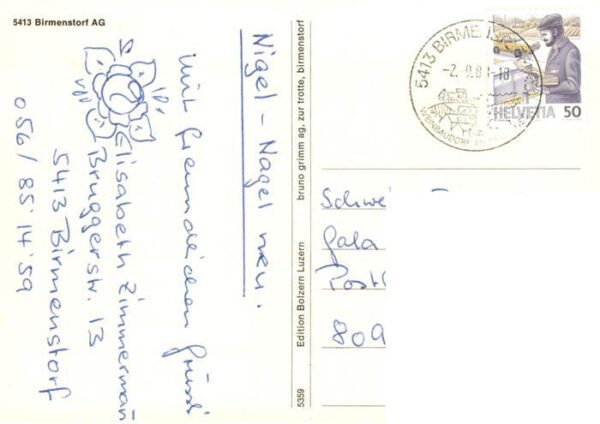 5413 Birmenstorf AG
Nigel - Nagel neu.
mit freundlichen Grüssen
Elisabeth Zimmermann
Bruggerstr. 13
5413 Birmenstorf
056/ 85'14'59
5359 Edition Bolzern Luzern bruno grimm ag, zur trotte, birmenstorf
5413 BIRMENST
-2.9.8
-18
WEINBAUDORF
HELVETIA 50
Schwei
Gala
Postf
809